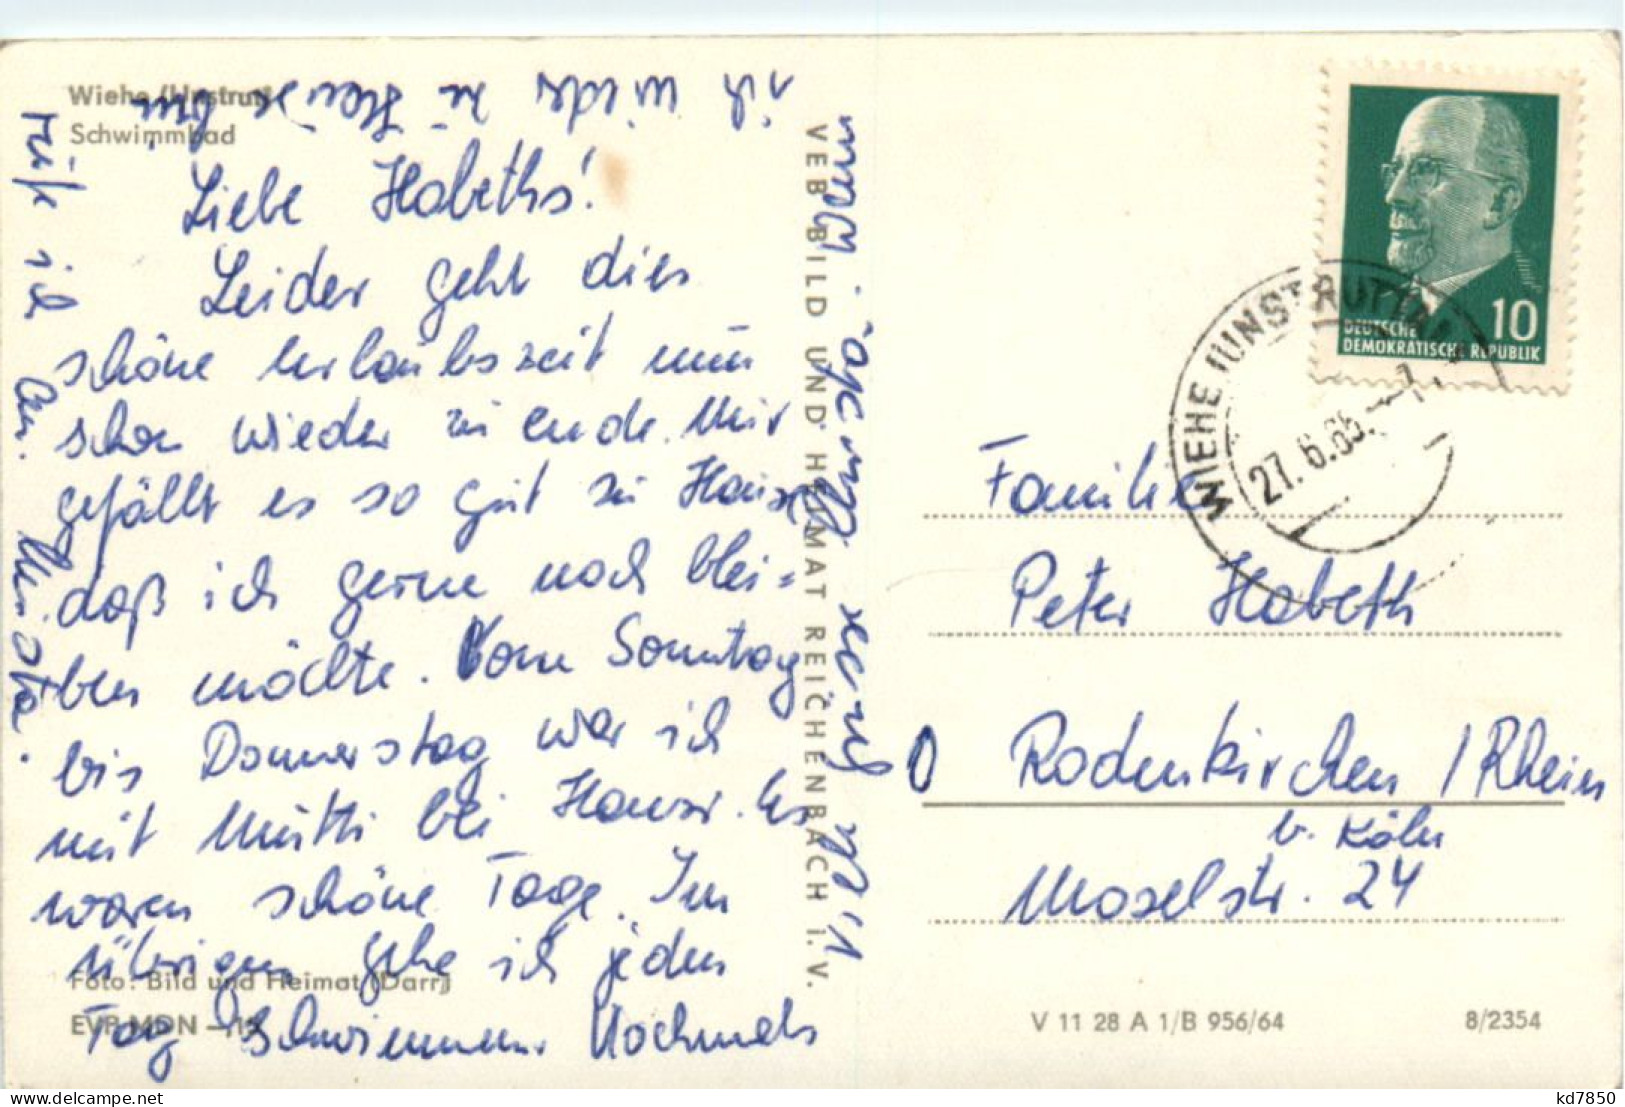 Wiehe (Unstrut)
Schwimmbad
Liebe Habeths!
Leider geht dies
schöne Urlaubszeit nun
schon wieder zu ende. Mir
gefällt es so gut zu Hause
daß ich gerne noch blei=
ben möchte. Vom Sonntag
bis Donnerstag war ich
mit Mutti bei Hansr. Es
waren schöne Tage. Im
übrigen gehe ich jeden
Tag Schwimmen. Nochmals
ich wieder zu Hause bin,
rufe ich an.
Foto: Bild und Heimat (Darr)
EVP MDN -,15
VEB BILD UND HEIMAT REICHENBACH I. V.
DEUTSCHE
DEMOKRATISCHE REPUBLIK
10
WIEHE (UNSTRUTTAL)
27. 6. 65.
Familie
Peter Habeth
Rodenkirchen / Rhein
b. Köln
Moselstr. 24
V 11 28 A 1/B 956/64
8/2354
kd7850